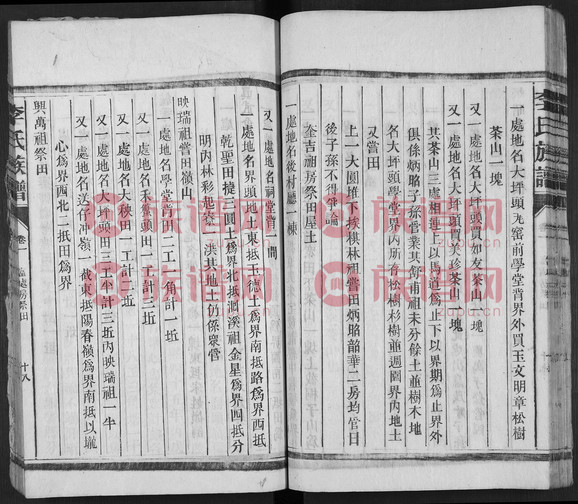 一處地名大坪頭瓦窰前學堂背界外買玉文明章松樹
茶山一塊
又一處地名大坪頭買如友茶山一塊
又一處地名大坪頭買美珍茶山一塊
其茶山三處相連上以馬道爲止下以界期爲止界外
俱係炳賂子孫管業其舞甫祖未分餘土並樹木地
名大坪頭學堂界內所蓄松樹杉樹並週圍界內地土
又嘗田
上一大圓堆下挨棋林祖嘗田炳賂韶華二房均管日
後子孫不得爭論
奎吉祖房祭田屋土
一處地名後材廳一棟
又一處地名祠堂背一間
又一處地名界頭地土東抵玉德土爲界南抵路爲界西抵
乾聖田㨗三圓土爲界北抵洞溪祖金星爲界四抵分
明內林彩起姿一洪其地土仍係衆管
映瑞祖嘗田嶺山
一處地名學堂背田二工一角計一坵
又一處地名禾鴦頭田一工計三坵
又一處地名大秧田一工計二坵
又一處地名大坪頭田三工半計三坵內映瑞祖一半
又一處地名送仔冲嶺一截東抵陽春嶺爲界南抵以壠
心爲界西北二抵田爲界
興萬祖祭田
李氏族譜
卷一
十八
李氏族譜